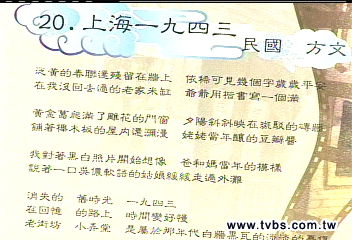 20.上海一九四三
民國 方文
泛黃的春聯還殘留在牆上 依稀可見幾個字歲歲平安
在我沒回去過的老家米缸 爺爺用楷書寫一個滿
黃金葛爬滿了雕花的門窗 夕陽斜斜映在斑駁的磚牆
鋪著櫸木板的屋內還瀰漫 姥姥當年釀的豆瓣醬
我對著黑白照片開始想像 爸和媽當年的模樣
說著一口吳儂軟語的姑娘緩緩走過外灘
消失的 舊時光 一九四三
在回憶 的路上 時間變好慢
老街坊 小弄堂 是屬於那年代白牆黑瓦的淡淡的憂傷
www.tvbs.com.tw